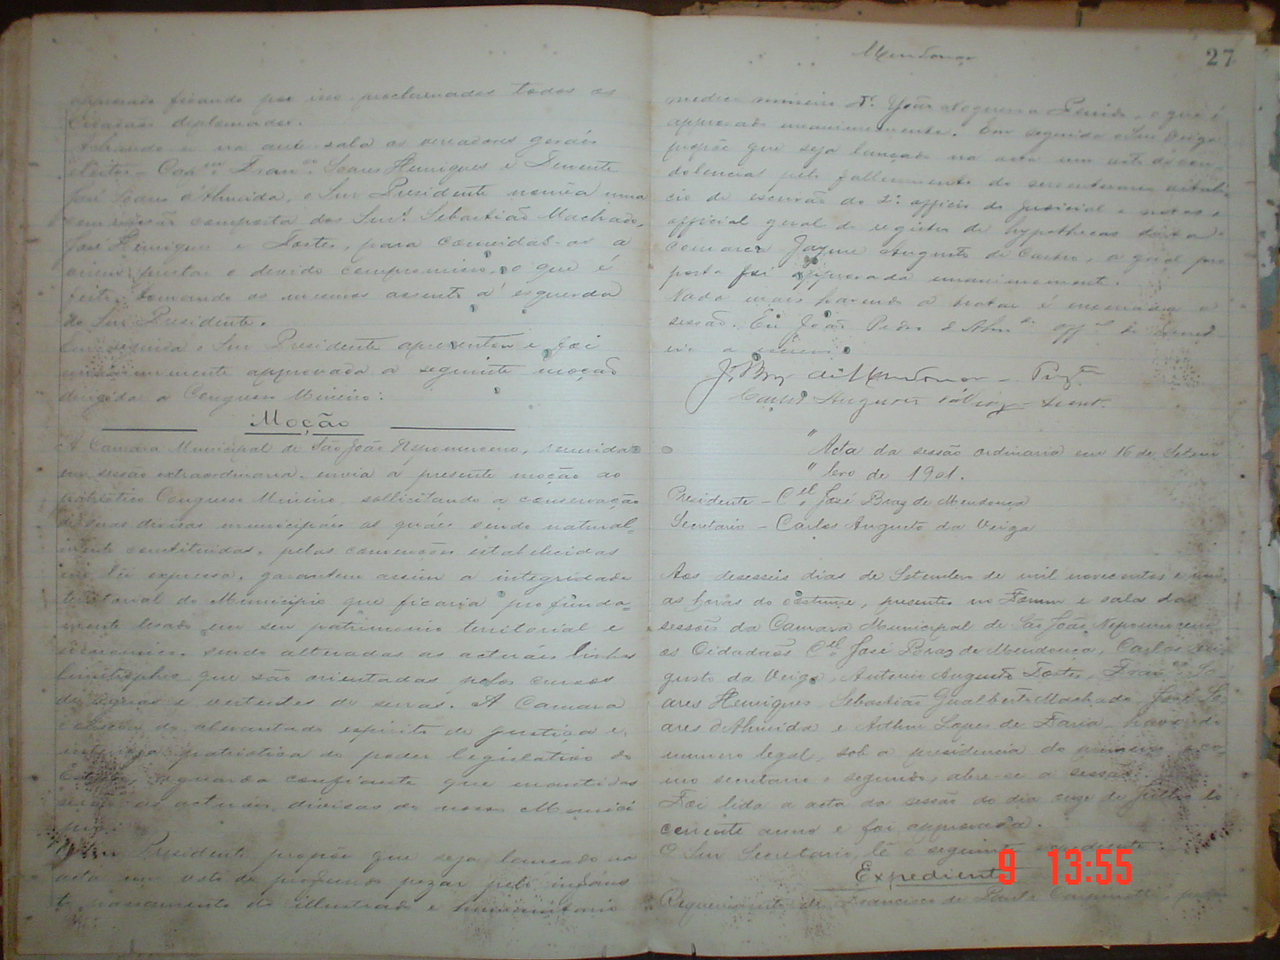 approvado ficando por isso proclamados todos os
cidadãos diplomados.
Achando-se na ante sala os vereadores geraes
eleitos - Cap.m Fran.co Soares Henriques e Tenente
José Soares d'Almeida, o Snr. Presidente nomêa uma
commissão composta dos Snrs. Sebastião Machado,
José Henriques e Fortes, para convidal-os a
prestar o devido compromisso, o que é
feito, tomando os mesmos assento á esquerda
do Snr. Presidente.
Em seguida o Snr. Presidente apresentou e foi
unanimemente approvada a seguinte moção
dirigida a Congresso Mineiro:
Moção
A Camara Municipal de São João Nepomuceno, reunida
em sessão extraordinaria, envia a presente moção ao
patriotico Congresso Mineiro, sollicitando a conservação
de suas divisas municipaes as quáes sendo natural-
mente constituidas, pelas convenções estabelecidas
em lei expressa, garantem assim a integridade
territorial do Municipio que ficaria profunda-
mente lesado em seu patrimonio territorial e
economico, sendo alteradas as actuáes linhas
limitrophes que são orientadas pelos cursos
de aguas e vertentes de serras. A Camara
do alevantado espirito de justiça e
patriotica do poder legislativo do
Estado, aguarda confiante que mantidas
sejam as actuáes divisas do nosso Munici
pio.
O Snr. Presidente propõe que seja lançado na
acta um voto de profundo pezar pelo infaus
to passamento do illustrado e humanitario
Mendonça
27
medico mineiro Dr. João Nogueira Penido, o que é
approvado unanimemente. Em seguida o Snr. Veiga
propõe que seja lançado na acta um voto de con
dolencias pelo fallecimento do serventuario vitali
cio de escrivão do 2º officio do judicial e notas e
official geral do registro de hypothecas desta
comarca Jayme Augusto de Castro, a qual pro
posta foi approvada unanimemente.
Nada mais havendo a tratar é encerrada a
sessão. Eu João Pedro
a escrevi.
J. Braz de Mendonça - Prest.
Carlos Augusto da Veiga - Secret.
" Acta da sessão ordinaria em 16 de Setem
" bro de 1901.
Presidente - Cel. José Braz de Mendonça
Secretario - Carlos Augusto da Veiga
Aos deseseis dias de Setembro de mil novecentos e um,
as horas do costume, presente no Forum e sala das
sessões da Camara Municipal de São João Nepomuceno
os Cidadãos Cel. José Braz de Mendonca, Carlos Au
gusto da Veiga, Antonio Augusto Fortes, Fran.co So
ares Henriques, Sebastião Gualberto Machado, José So
ares d'Almeida e Adhm Lopes de Faria, havendo
numero legal, sob a presidencia do primeiro e co
mo secretario o segundo, abre-se a sessão.
Foi lida a acta da sessão do dia onze de Julho do
corrente anno e foi approvada.
O Snr. Secretario lê o seguinte expediente.
Expediente
Requerimento de Francisco de Paula
9 13:55